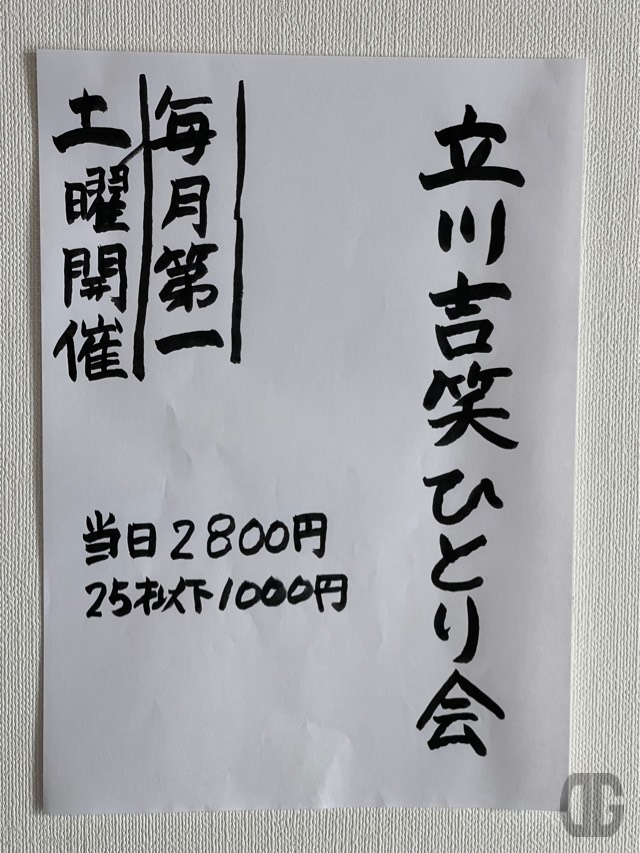 立川吉笑ひとり会
毎月第一
土曜開催
当日2800円
25才以下1000円
DG